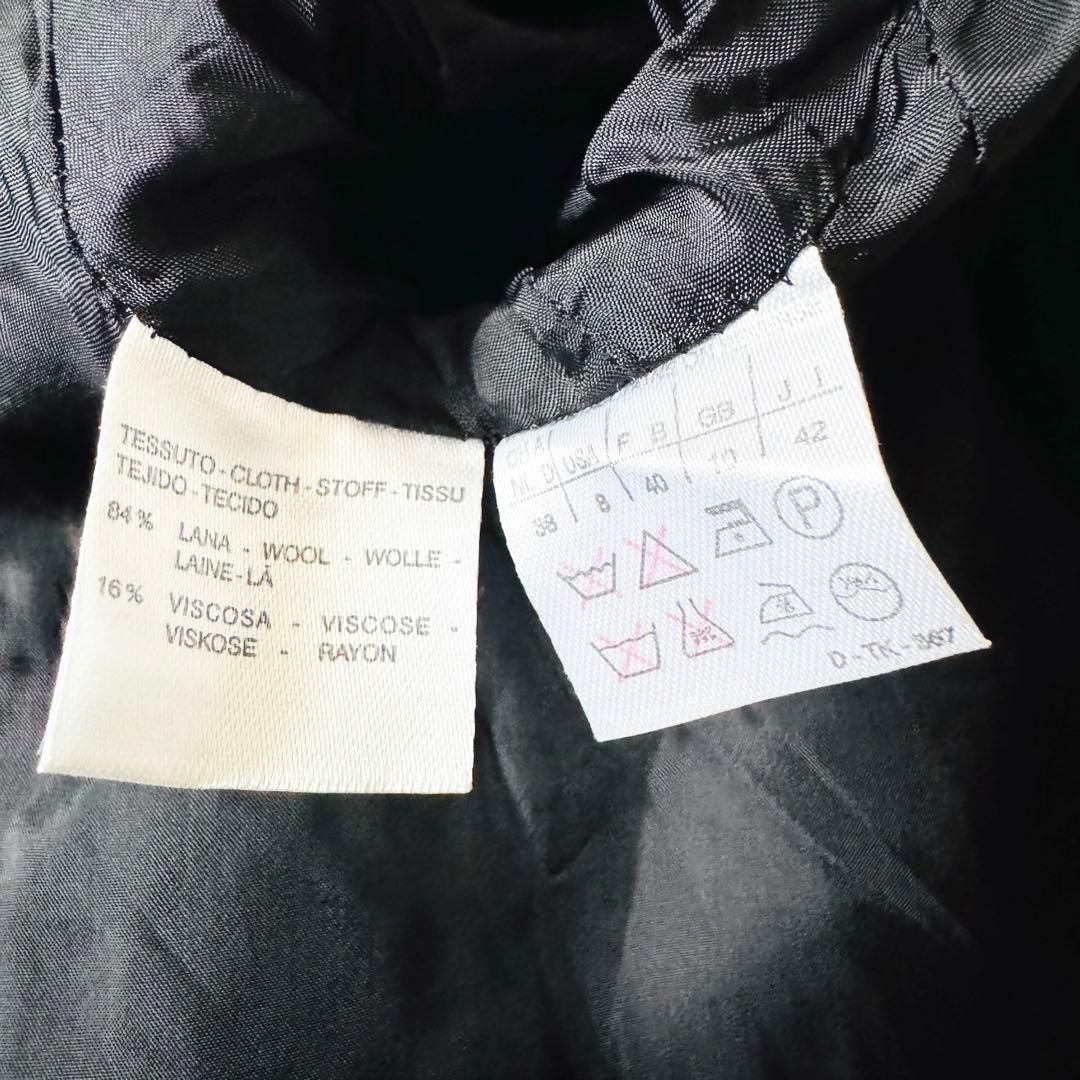 TESSUTO-CLOTH-STOFF-TISSU
TEJIDO-TECIDO
84% LANA - WOOL - WOLLE -
LAINE-LÃ
16% VISCOSA - VISCOSE -
VISKOSE - RAYON
NL D USA F B GB J I
38 8 40 10 42
P
D-TK-